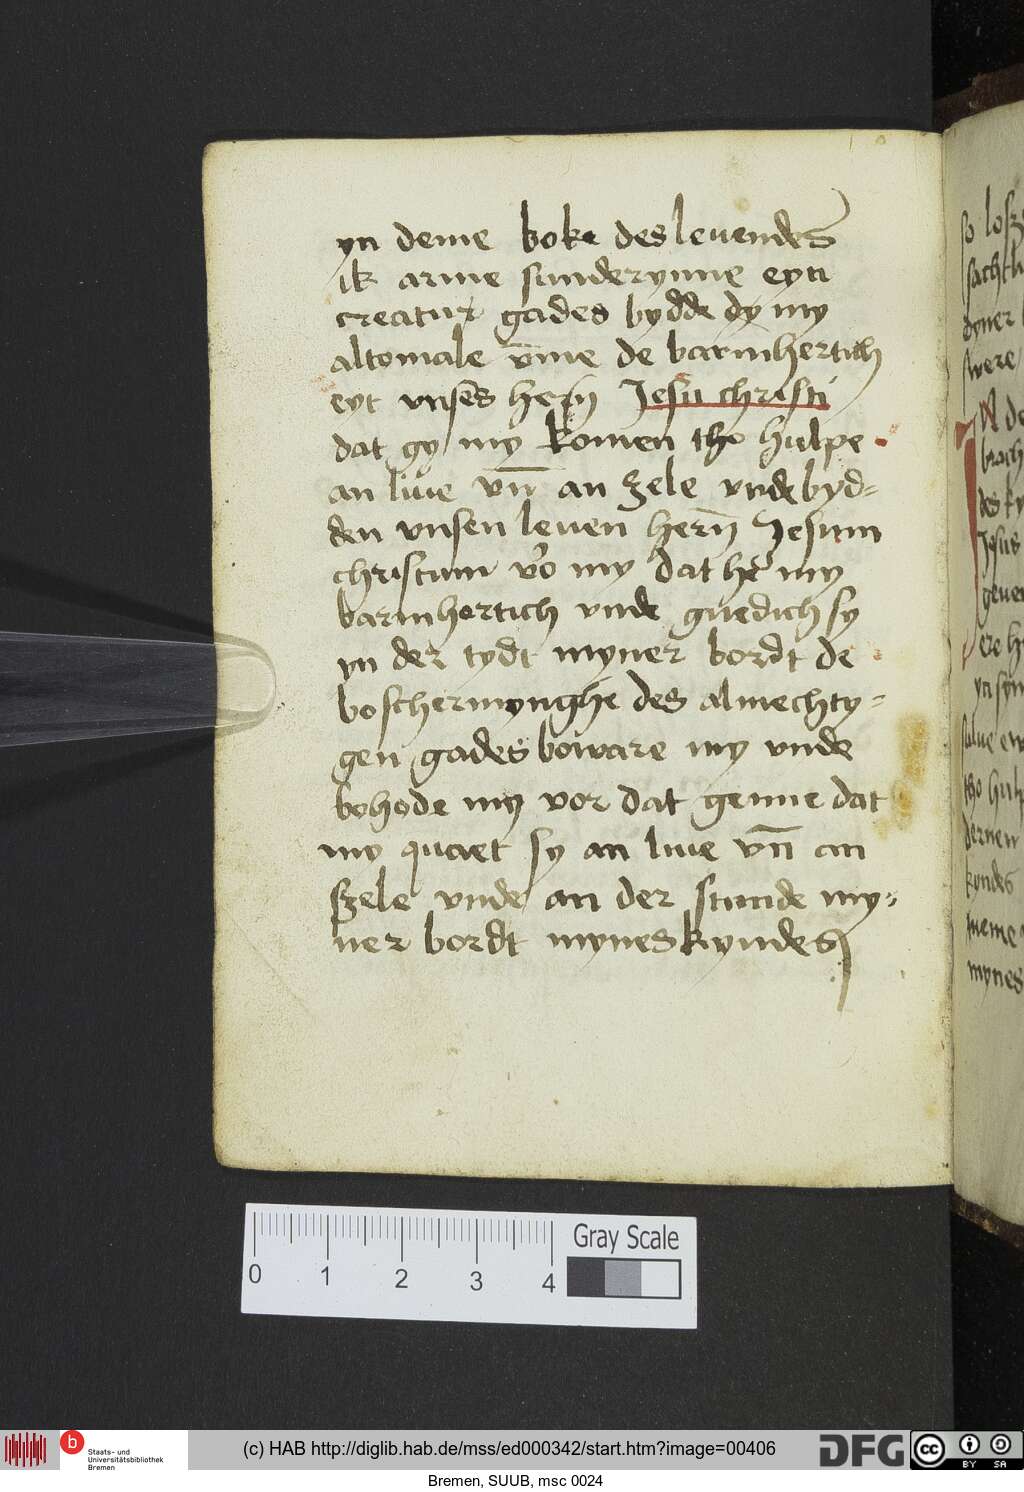 yn deme boke des leuendes
ik arme sunderynne eyn
creatur gades bydde dy my
altomale vm̄e de barmhertich
eyt vnses hern̄ Jesu christi
dat gy my komen tho hulpe
an liue vn̄ an zele vnde byd=
den vnsen leuen hern̄ Jesum
christum vo my dat he my
barmhertich vnde guedich sy
yn der tydt myner bordt de
boschermynghe des almechty=
gen gades boware my vnde
bohode my vor dat genne dat
my quaet sy an liue vn̄ an
szele vnde an der stunde my=
ner bordt mynes kyndes
so
sachth
dyner
swere
N de
broch
des ky
Jesus
geuen
ere h
yn syn
sulue ew
tho hulp
dernen
kyndes
meme
mynes
0 1 2 3 4
Gray Scale
b Staats- und
Universitätsbibliothek
Bremen
(c) HAB http://diglib.hab.de/mss/ed000342/start.htm?image=00406
DFG
cc BY SA
Bremen, SUUB, msc 0024